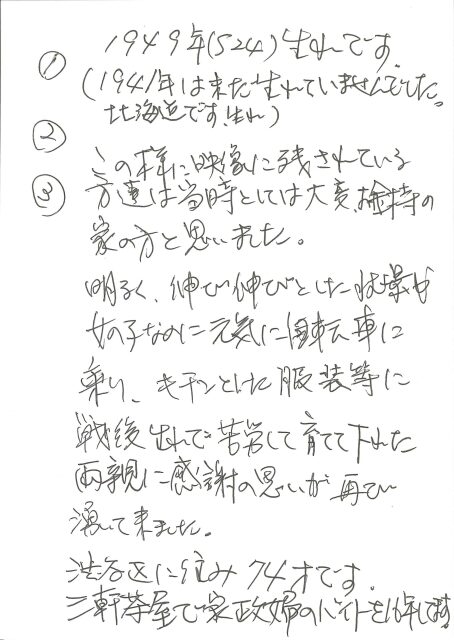 ① 1949年(S24)生れです。
(1941年は未だ生れていませんでした。
北海道です。生れ)
②
この様に映像に残されている
③ 方達は当時としては大変、金持の
家の方と思いました。
明るく、伸び伸びとした
女の子なのに元気に自転車に
乗り、キチンとした服装等に
戦後生れで苦労して育てて下れた
両親に感謝の思いが再び
湧いて来ました。
渋谷区に住み74才です。
三軒茶屋で家政婦のバイトを